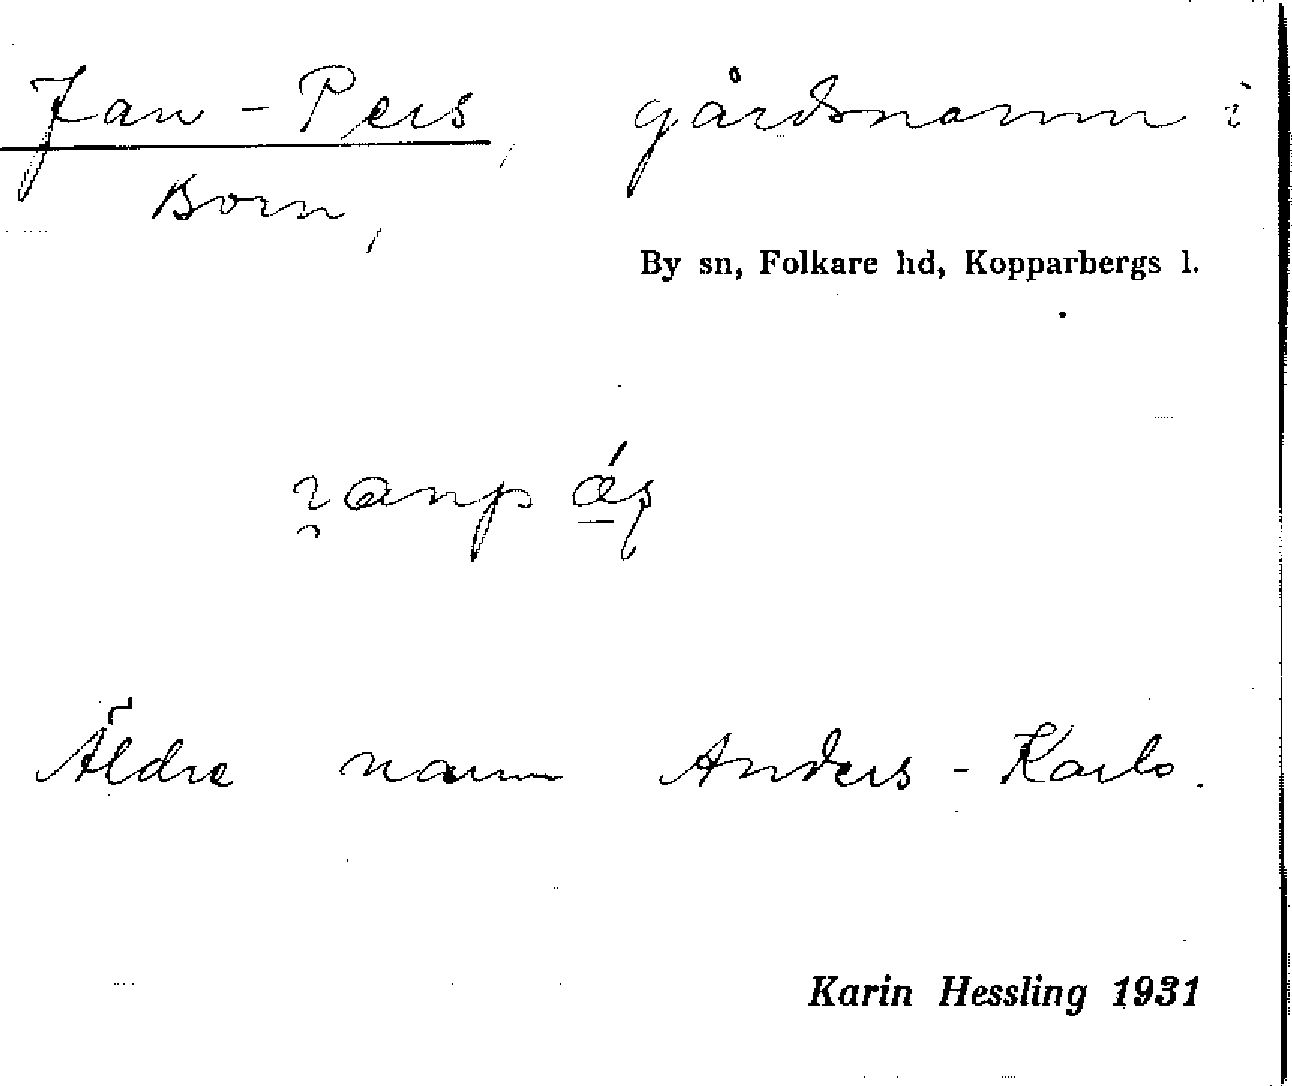 Jan-Pers, gårdsnamn i
Born,
By sn, Folkare hd, Kopparbergs l.
Äldre namn Anders-Karls.
Karin Hessling 1931